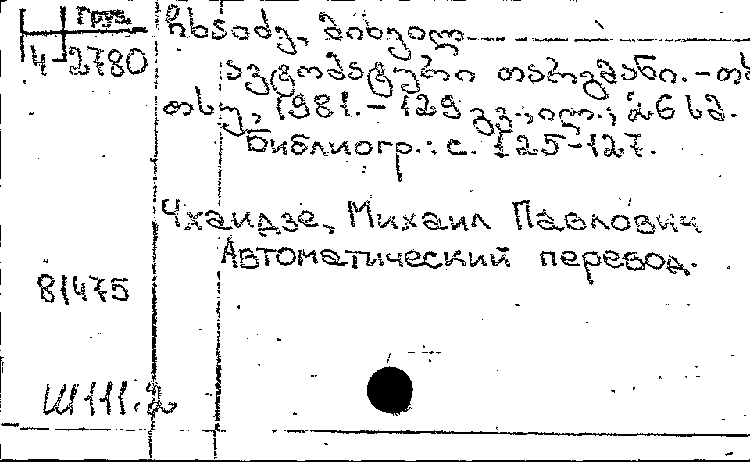 Груз. ჩხაიძე, მიხეილ
4-2780
ავტომატური თარგმანი.-თბ
თსუ, 1981.-129 გვ., ილ.; 26 სმ.
Библиогр.: с. 125-127.
Чхаидзе, Михаил Павлович
Автоматический перевод.
81475
Ш111.2